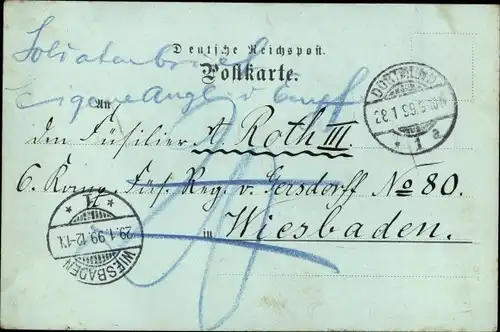 Soldatenbrief
Eigene Angl. d. Empf.
Deutsche Reichspost.
Postkarte.
An
den Füsilier A. Roth III.
6. Komp. Füs. Reg. v. Gersdorff No 80.
in Wiesbaden.
DORTMUND
* 1 a
WIESBADEN
29.1.99.12-1N.
* 1 *